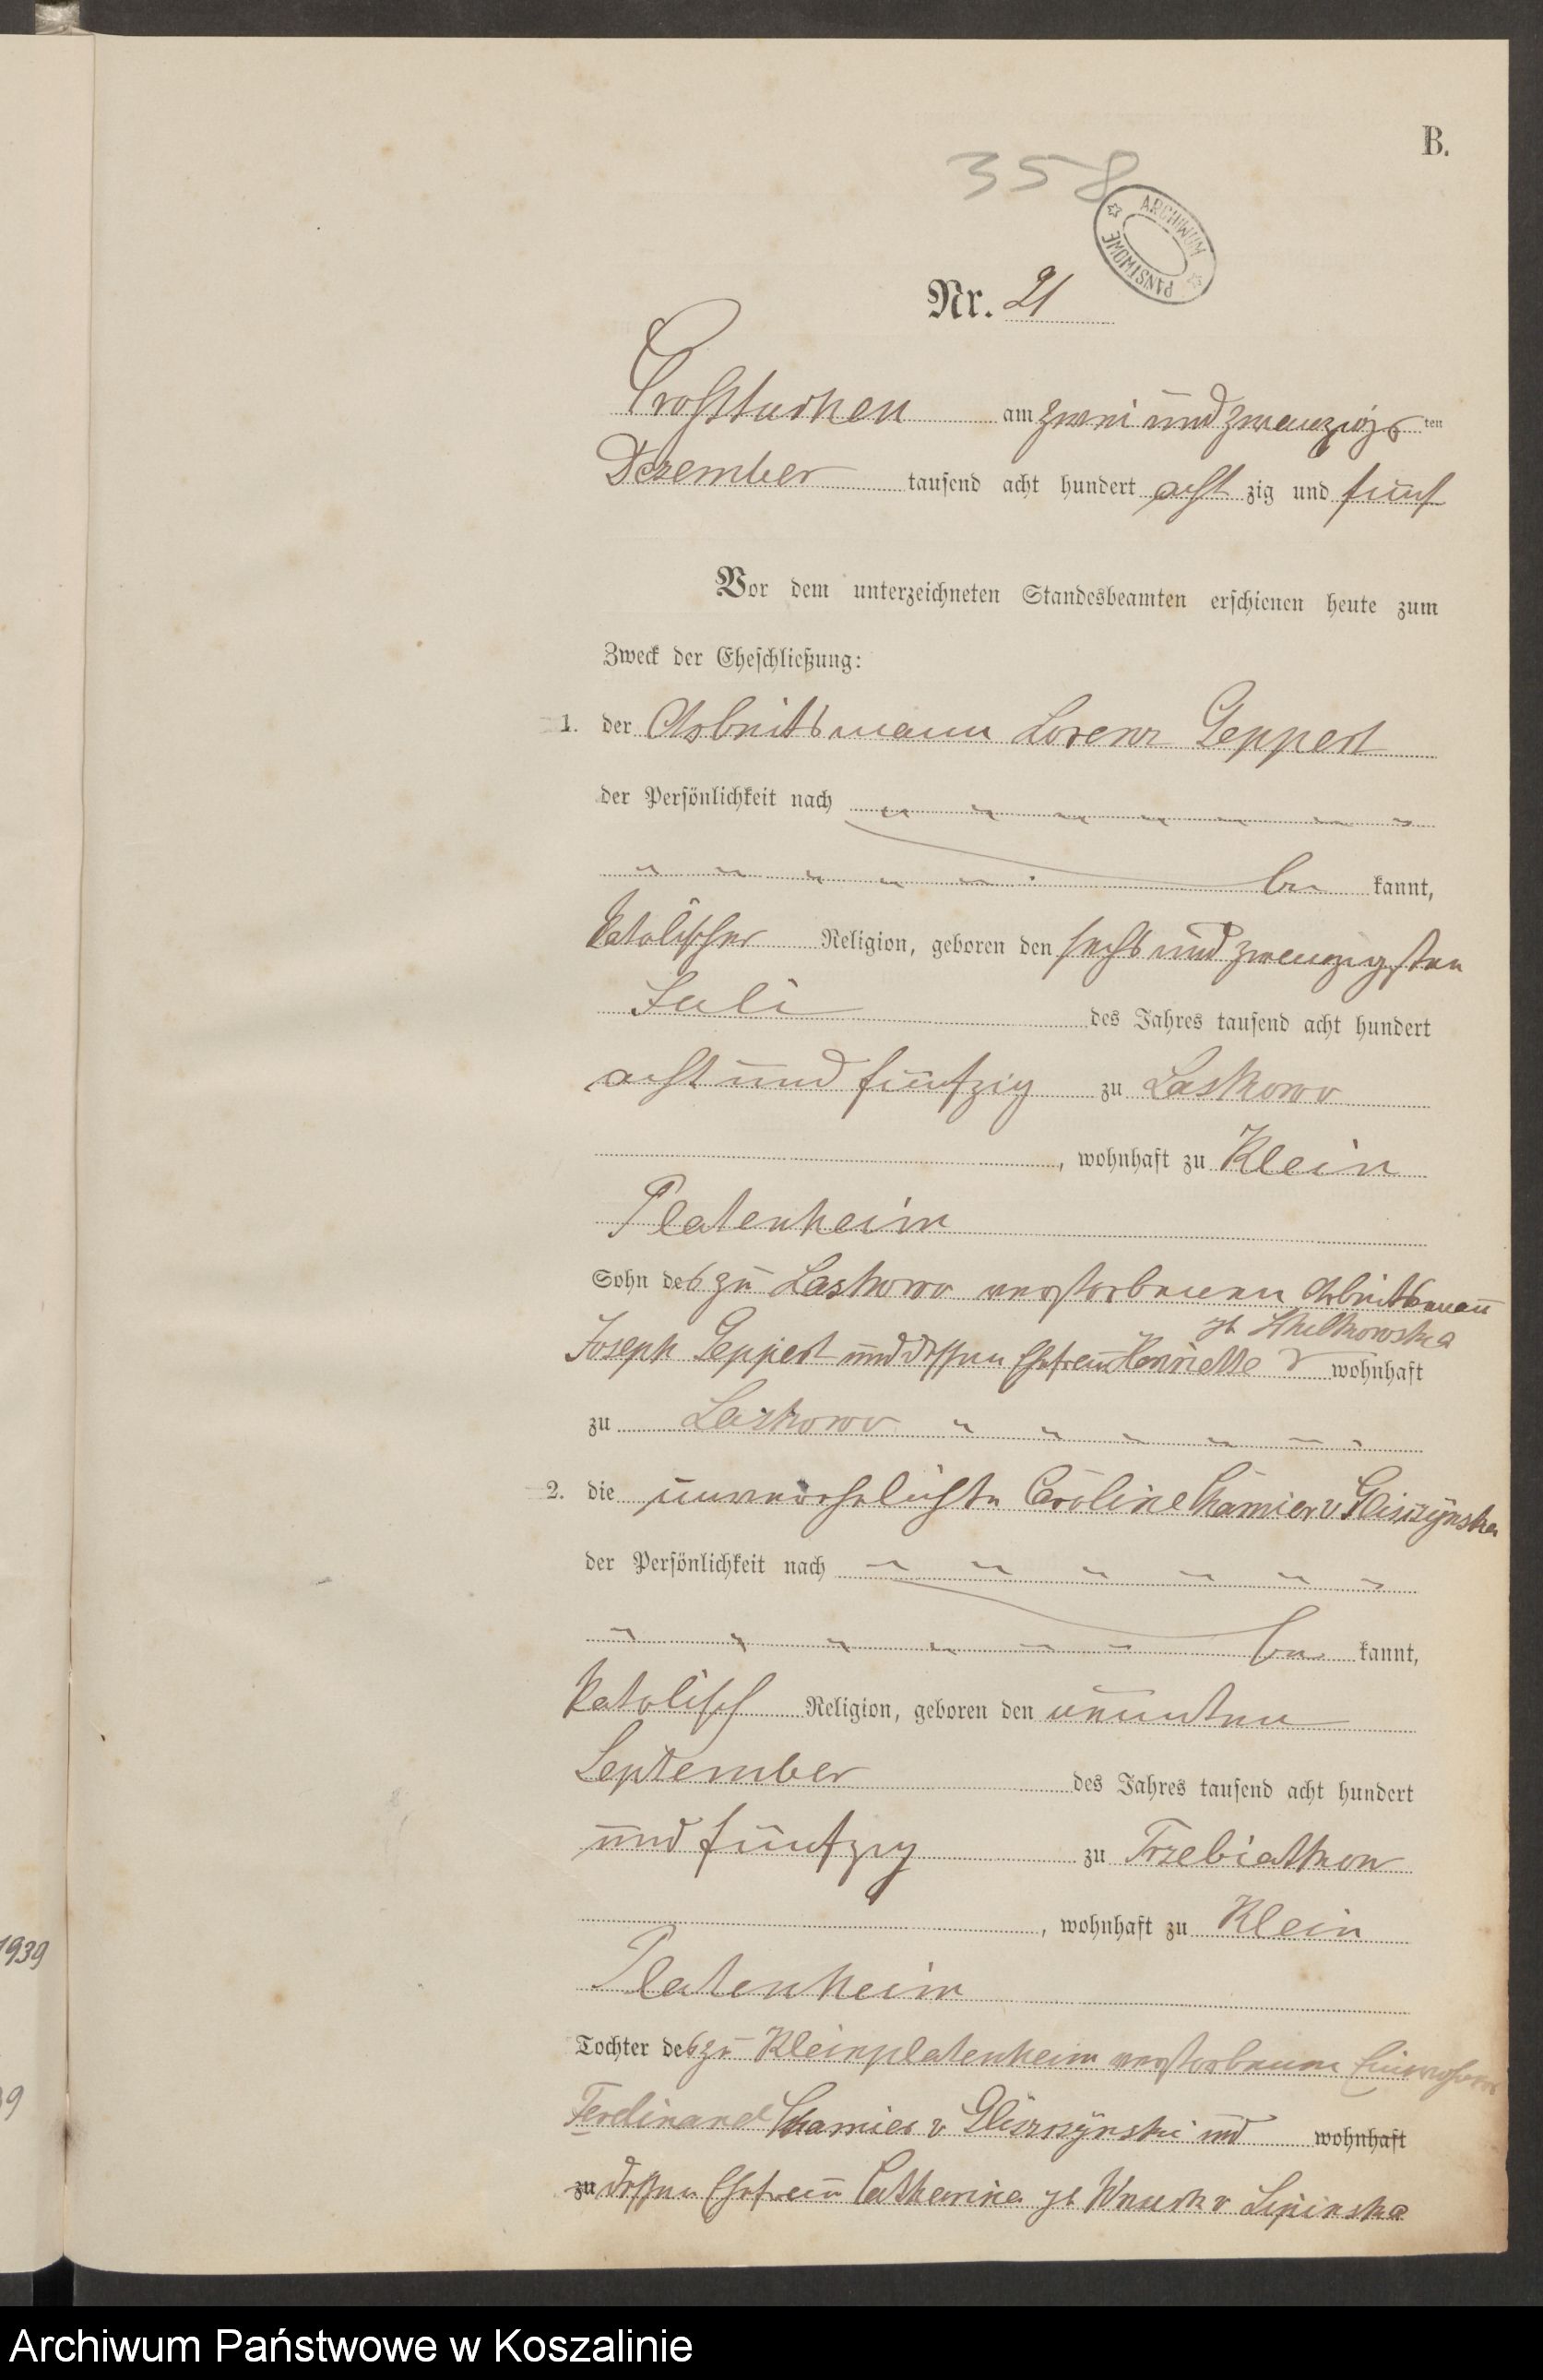 B.
358
ARCHIWUM PAŃSTWOWE
Nr. 21
Großtuchen am zwei und zwanzigsten
Dezember tausend acht hundert acht zig und fünf
Vor dem unterzeichneten Standesbeamten erschienen heute zum
Zweck der Eheschließung:
1. der Arbeitsmann Lorenz Geppert
der Persönlichkeit nach
be kannt,
katolischer Religion, geboren den sechs und zwanzigsten
Juli des Jahres tausend acht hundert
acht und fünfzig zu Laskowo
, wohnhaft zu Klein
Platenheim
Sohn des zu Laskowo verstorbenen Arbeitsmann
Joseph Geppert und dessen Ehefrau Henriette gb wohnhaft
zu Laskowo
2. die unverehelichte Caroline Chamier v Gliszczynska
der Persönlichkeit nach
be kannt,
katolisch Religion, geboren den neunten
September des Jahres tausend acht hundert
und fünfzig zu Trzebiatkow
, wohnhaft zu Klein
Platenheim
1939
Tochter des zu Kleinplatenheim verstorbenen Einwohner
Ferdinand Chamier v Gliszczynski und wohnhaft
9
zu dessen Ehefrau Catharina gb Wnuck v Lipinska
Archiwum Państwowe w Koszalinie